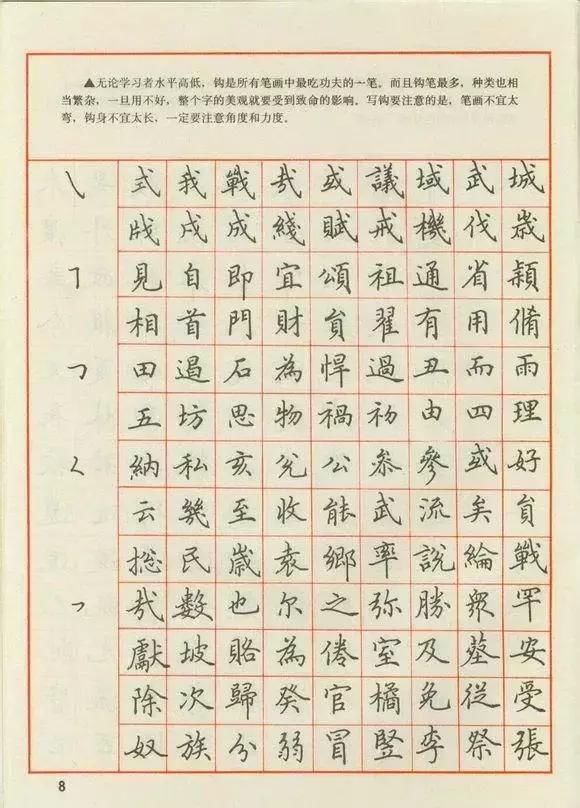 ▲无论学习者水平高低，钩是所有笔画中最吃功夫的一笔。而且钩笔最多，种类也相
当繁杂，一旦用不好，整个字的美观就要受到致命的影响。写钩要注意的是，笔画不宜太
弯，钩身不宜太长，一定要注意角度和力度。
㇏ 式 我 戰 哉 或 議 域 武 城
戕 戌 成 綫 賦 戒 機 伐 歲
㇕ 見 自 即 宜 頌 祖 通 省 穎
相 首 門 財 員 翟 有 用 脩
㇇ 田 過 石 為 悍 過 丑 而 雨
五 坊 思 物 禍 初 由 四 理
ㄑ 納 私 亥 兊 公 叅 參 或 好
云 幾 至 收 能 武 流 矣 員
捴 民 歲 袁 鄉 率 說 綸 戰
㇇ 哉 數 也 尔 之 弥 勝 眾 罕
獻 坡 賂 為 倦 室 及 葵 安
除 次 歸 癸 官 橘 免 從 受
奴 族 分 弱 冒 竪 李 祭 張
8